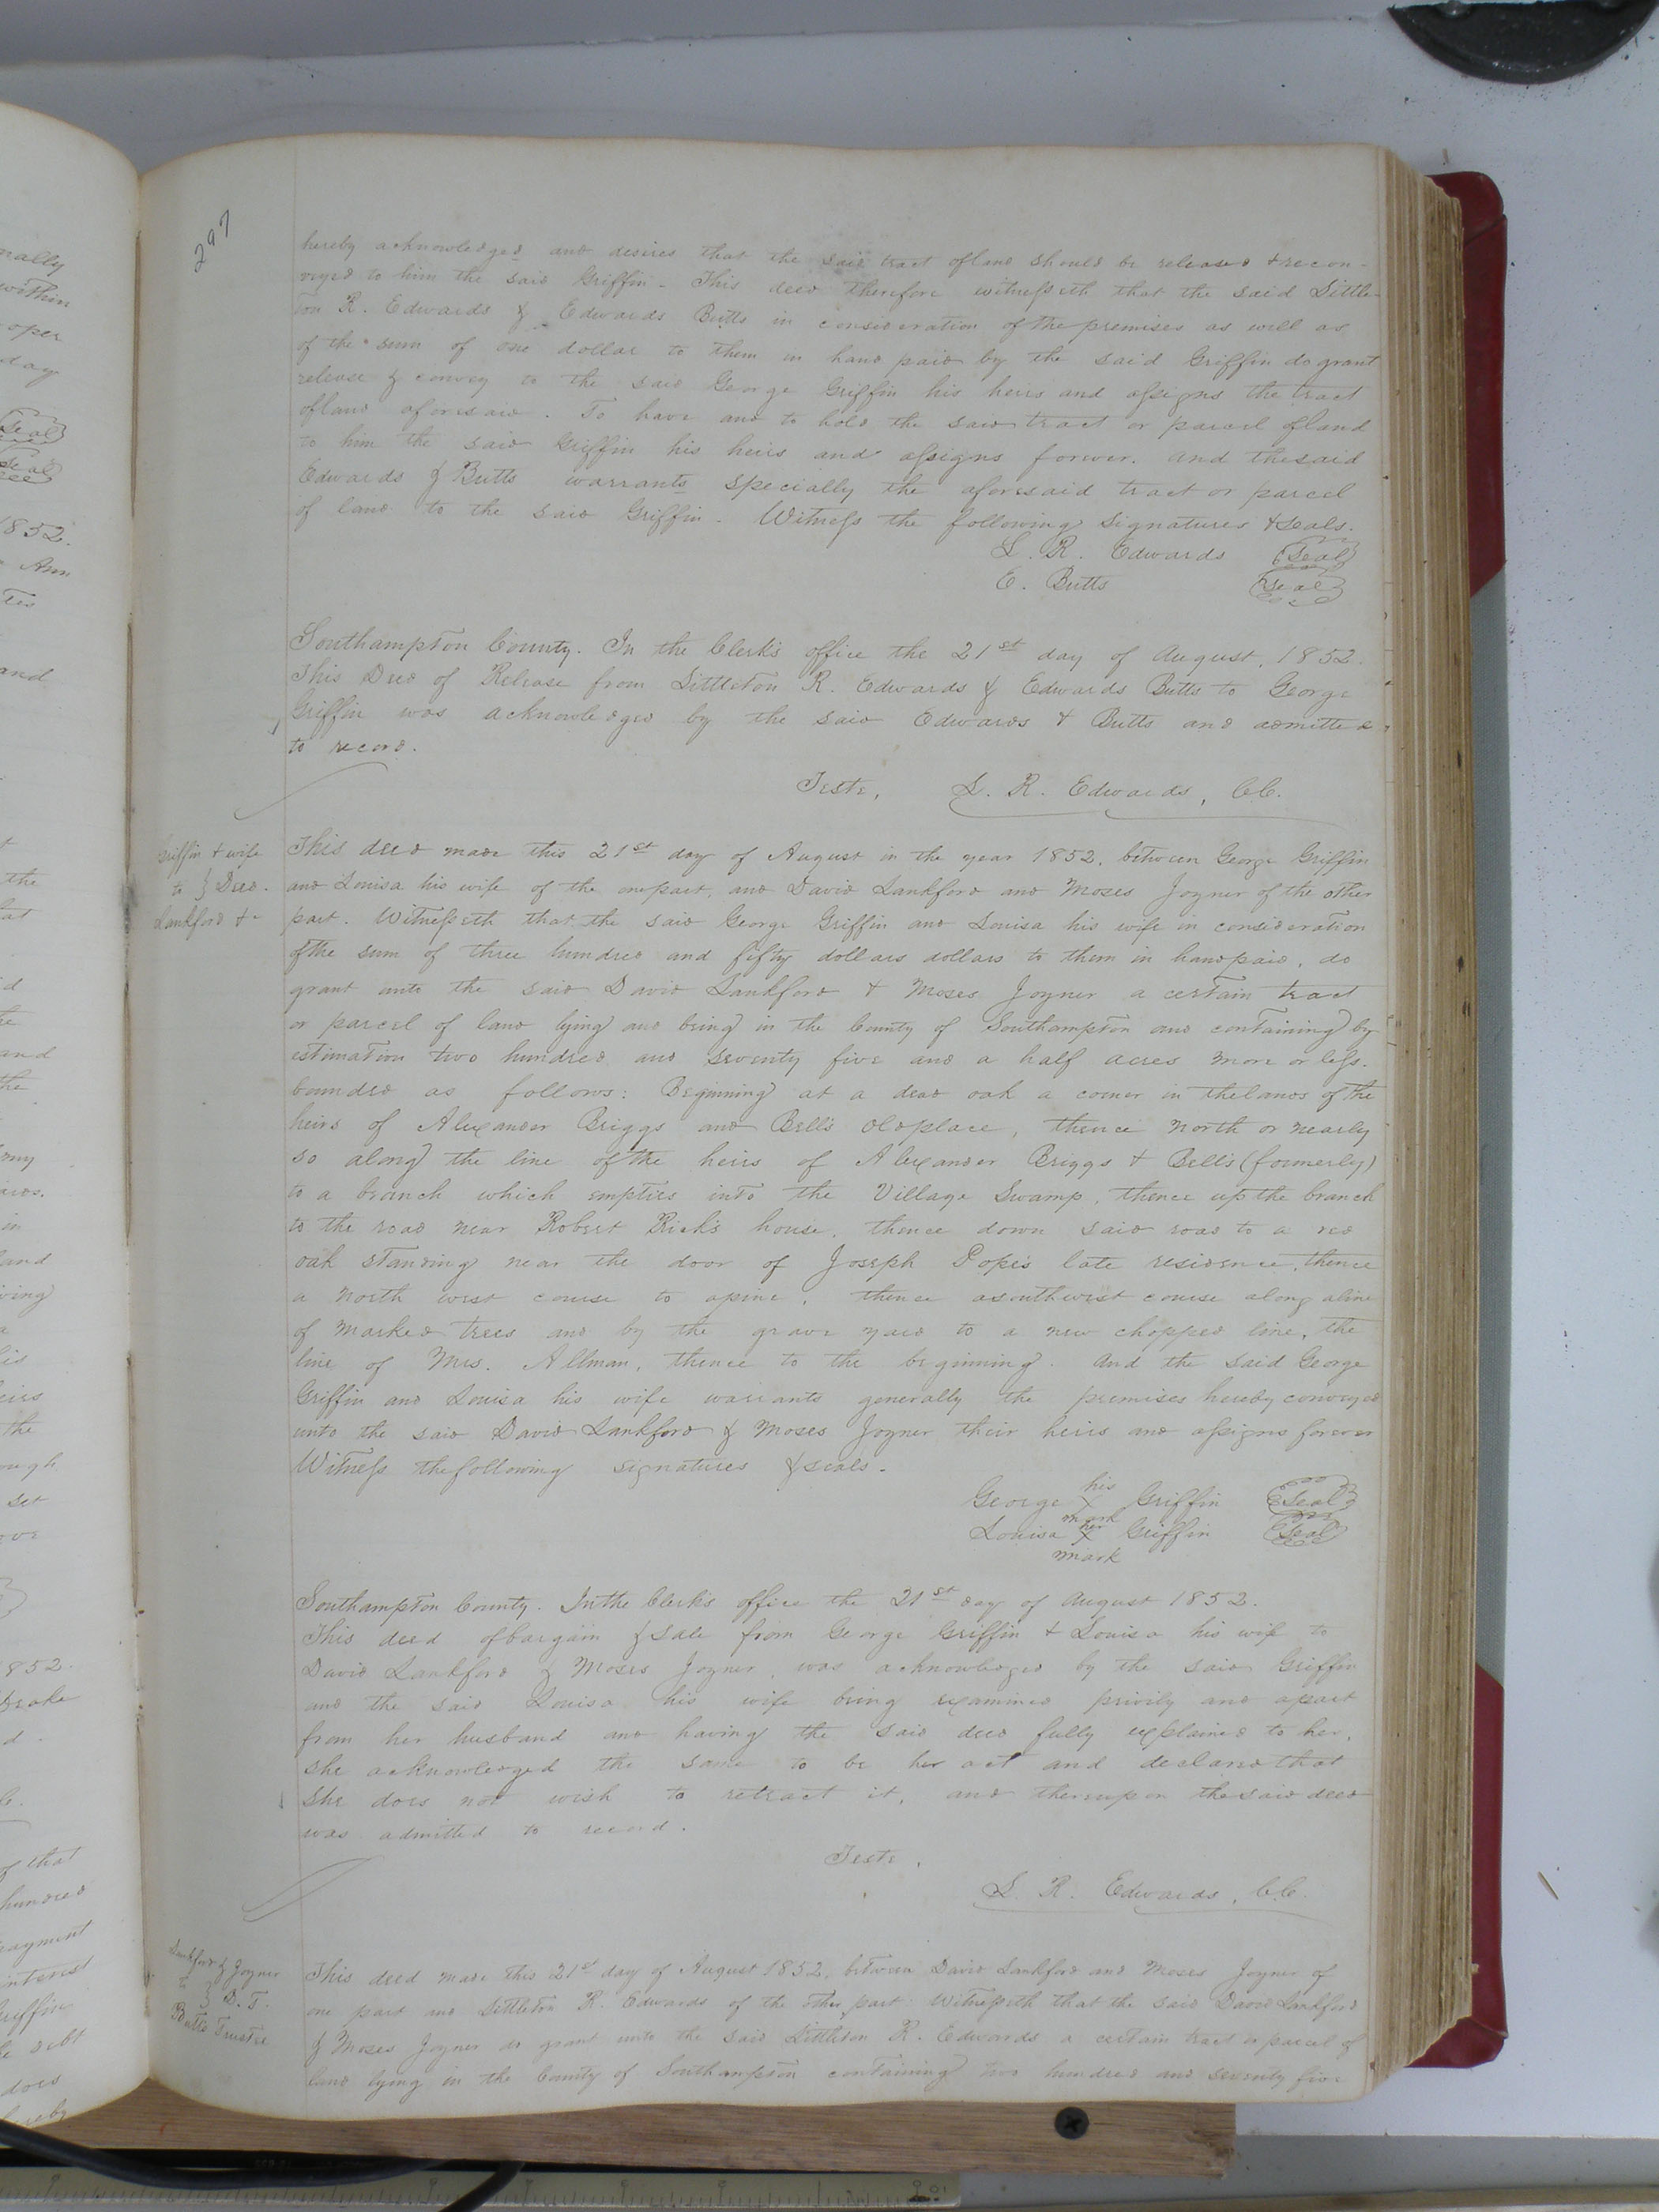 297
hereby acknowledged and desires that the said tract of land should be released & recon-
veyed to him the said Griffin - This deed therefore witnesseth that the said Little-
ton R. Edwards & Edwards Butts in consideration of the premises as well as
of the sum of one dollar to them in hand paid by the said Griffin do grant
release & convey to the said George Griffin his heirs and assigns the tract
of land aforesaid. To have and to hold the said tract or parcel of land
to him the said Griffin his heirs and assigns forever. And the said
Edwards & Butts warrants specially the aforesaid tract or parcel
of land to the said Griffin. Witness the following signatures & seals.
L. R. Edwards (Seal)
E. Butts (Seal)
Southampton County. In the Clerk's office the 21st day of August, 1852.
This Deed of Release from Littleton R. Edwards & Edwards Butts to George
Griffin was acknowledged by the said Edwards & Butts and admitted
to record.
Teste, L. R. Edwards, C.C.
Griffin & wife
to } Deed.
Lankford &c
This deed made this 21st day of August in the year 1852, between George Griffin
and Louisa his wife of the one part, and David Lankford and Moses Joyner of the other
part. Witnesseth that the said George Griffin and Louisa his wife in consideration
of the sum of three hundred and fifty dollars dollars to them in hand paid, do
grant unto the said David Lankford & Moses Joyner a certain tract
or parcel of land lying and being in the County of Southampton and containing by
estimation two hundred and seventy five and a half acres more or less.
bounded as follows: Beginning at a dead oak a corner in the lands of the
heirs of Alexander Briggs and Bell's old place, thence north or nearly
so along the line of the heirs of Alexander Briggs & Bell's (formerly)
to a branch which empties into the Village Swamp, thence up the branch
to the road near Robert Rick's house, thence down said road to a red
oak standing near the door of Joseph Pope's late residence, thence
a north west course to a pine, thence a south west course along a line
of marked trees and by the grave yard to a new chopped line, the
line of Mrs. Allman, thence to the beginning. And the said George
Griffin and Louisa his wife warrants generally the premises hereby conveyed
unto the said David Lankford & Moses Joyner their heirs and assigns forever
Witness the following signatures & seals.
George his X mark Griffin (Seal)
Louisa her X mark Griffin (Seal)
Southampton County. In the Clerk's office the 21st day of August 1852.
This deed of bargain & sale from George Griffin & Louisa his wife to
David Lankford & Moses Joyner, was acknowledged by the said Griffin
and the said Louisa his wife being examined privily and apart
from her husband and having the said deed fully explained to her,
she acknowledged the same to be her act and declared that
she does not wish to retract it, and thereupon the said deed
was admitted to record.
Teste,
L. R. Edwards, C.C.
Lankford & Joyner
to } D. T.
Butts Trustee
This deed made this 21st day of August 1852, between David Lankford and Moses Joyner of
one part and Littleton R. Edwards of the other part: Witnesseth that the said David Lankford
& Moses Joyner do grant unto the said Littleton R. Edwards a certain tract or parcel of
land lying in the County of Southampton containing two hundred and seventy five